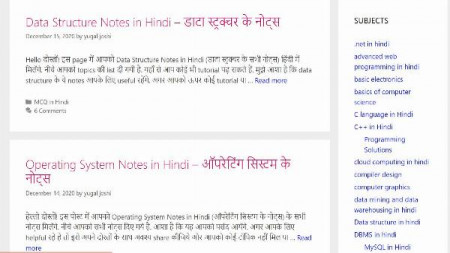 Data Structure Notes in Hindi – डाटा स्ट्रक्चर के नोट्स
December 15, 2020 by yugal joshi
Hello दोस्तों! इस page में आपको Data Structure Notes in Hindi (डाटा स्ट्रक्चर के सभी नोट्स) हिंदी में
मिलेंगे. नीचे आपको topics की list दी गयी है. यहाँ से आप कोई भी tutorial पढ़ सकते है. मुझे आशा है कि data
structure के ये notes आपके लिए useful रहेंगे. अगर आपको ऊपर कोई tutorial पा ... Read more
MCQ in Hindi
6 Comments
Operating System Notes in Hindi – ऑपरेटिंग सिस्टम के
नोट्स
December 14, 2020 by yugal joshi
हेल्लो दोस्तों! इस पोस्ट में आपको Operating System Notes in Hindi (ऑपरेटिंग सिस्टम के नोट्स) के सभी
नोट्स मिलेंगे. नीचे आपको नोट्स दिए गये है. आशा है कि यह आपको पसंद आयेंगे. अगर आपके लिए
helpful रहे हो तो इसे अपने दोस्तों के साथ अवश्य share कीजिये और आपको कोई टॉपिक नहीं मिल पा ... Read
more
SUBJECTS
.net in hindi
advanced web
programming in hindi
basic electronics
basics of computer
science
C language in Hindi
C++ in Hindi
Programming
Solutions
cloud computing in hindi
compiler design
computer graphics
data mining and data
warehousing in hindi
Data structure in hindi
DBMS in hindi
MySQL in Hindi